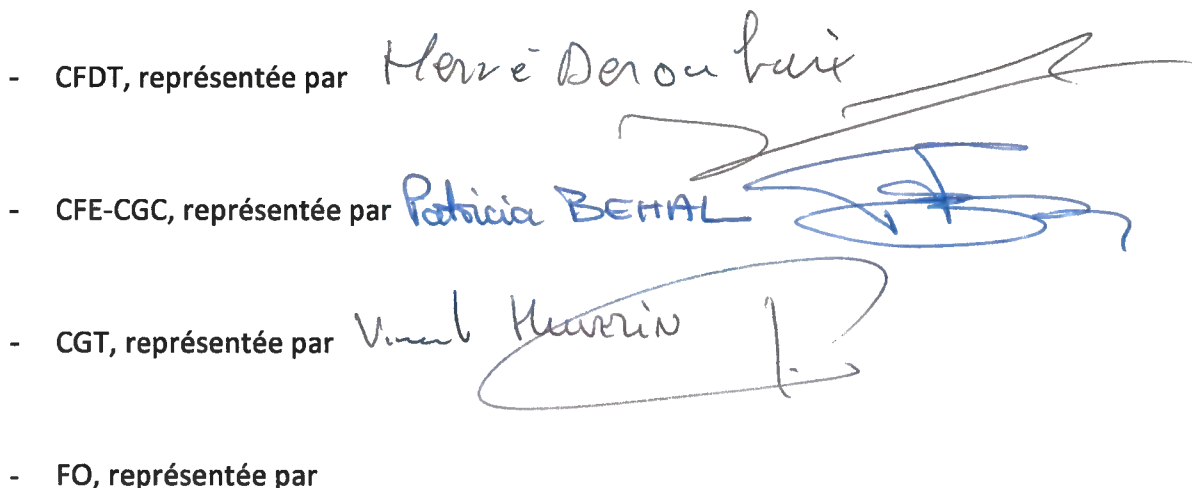 - CFDT, représentée par Hervé Deroubaix
- CFE-CGC, représentée par Patricia BEHAL
- CGT, représentée par
- FO, représentée par